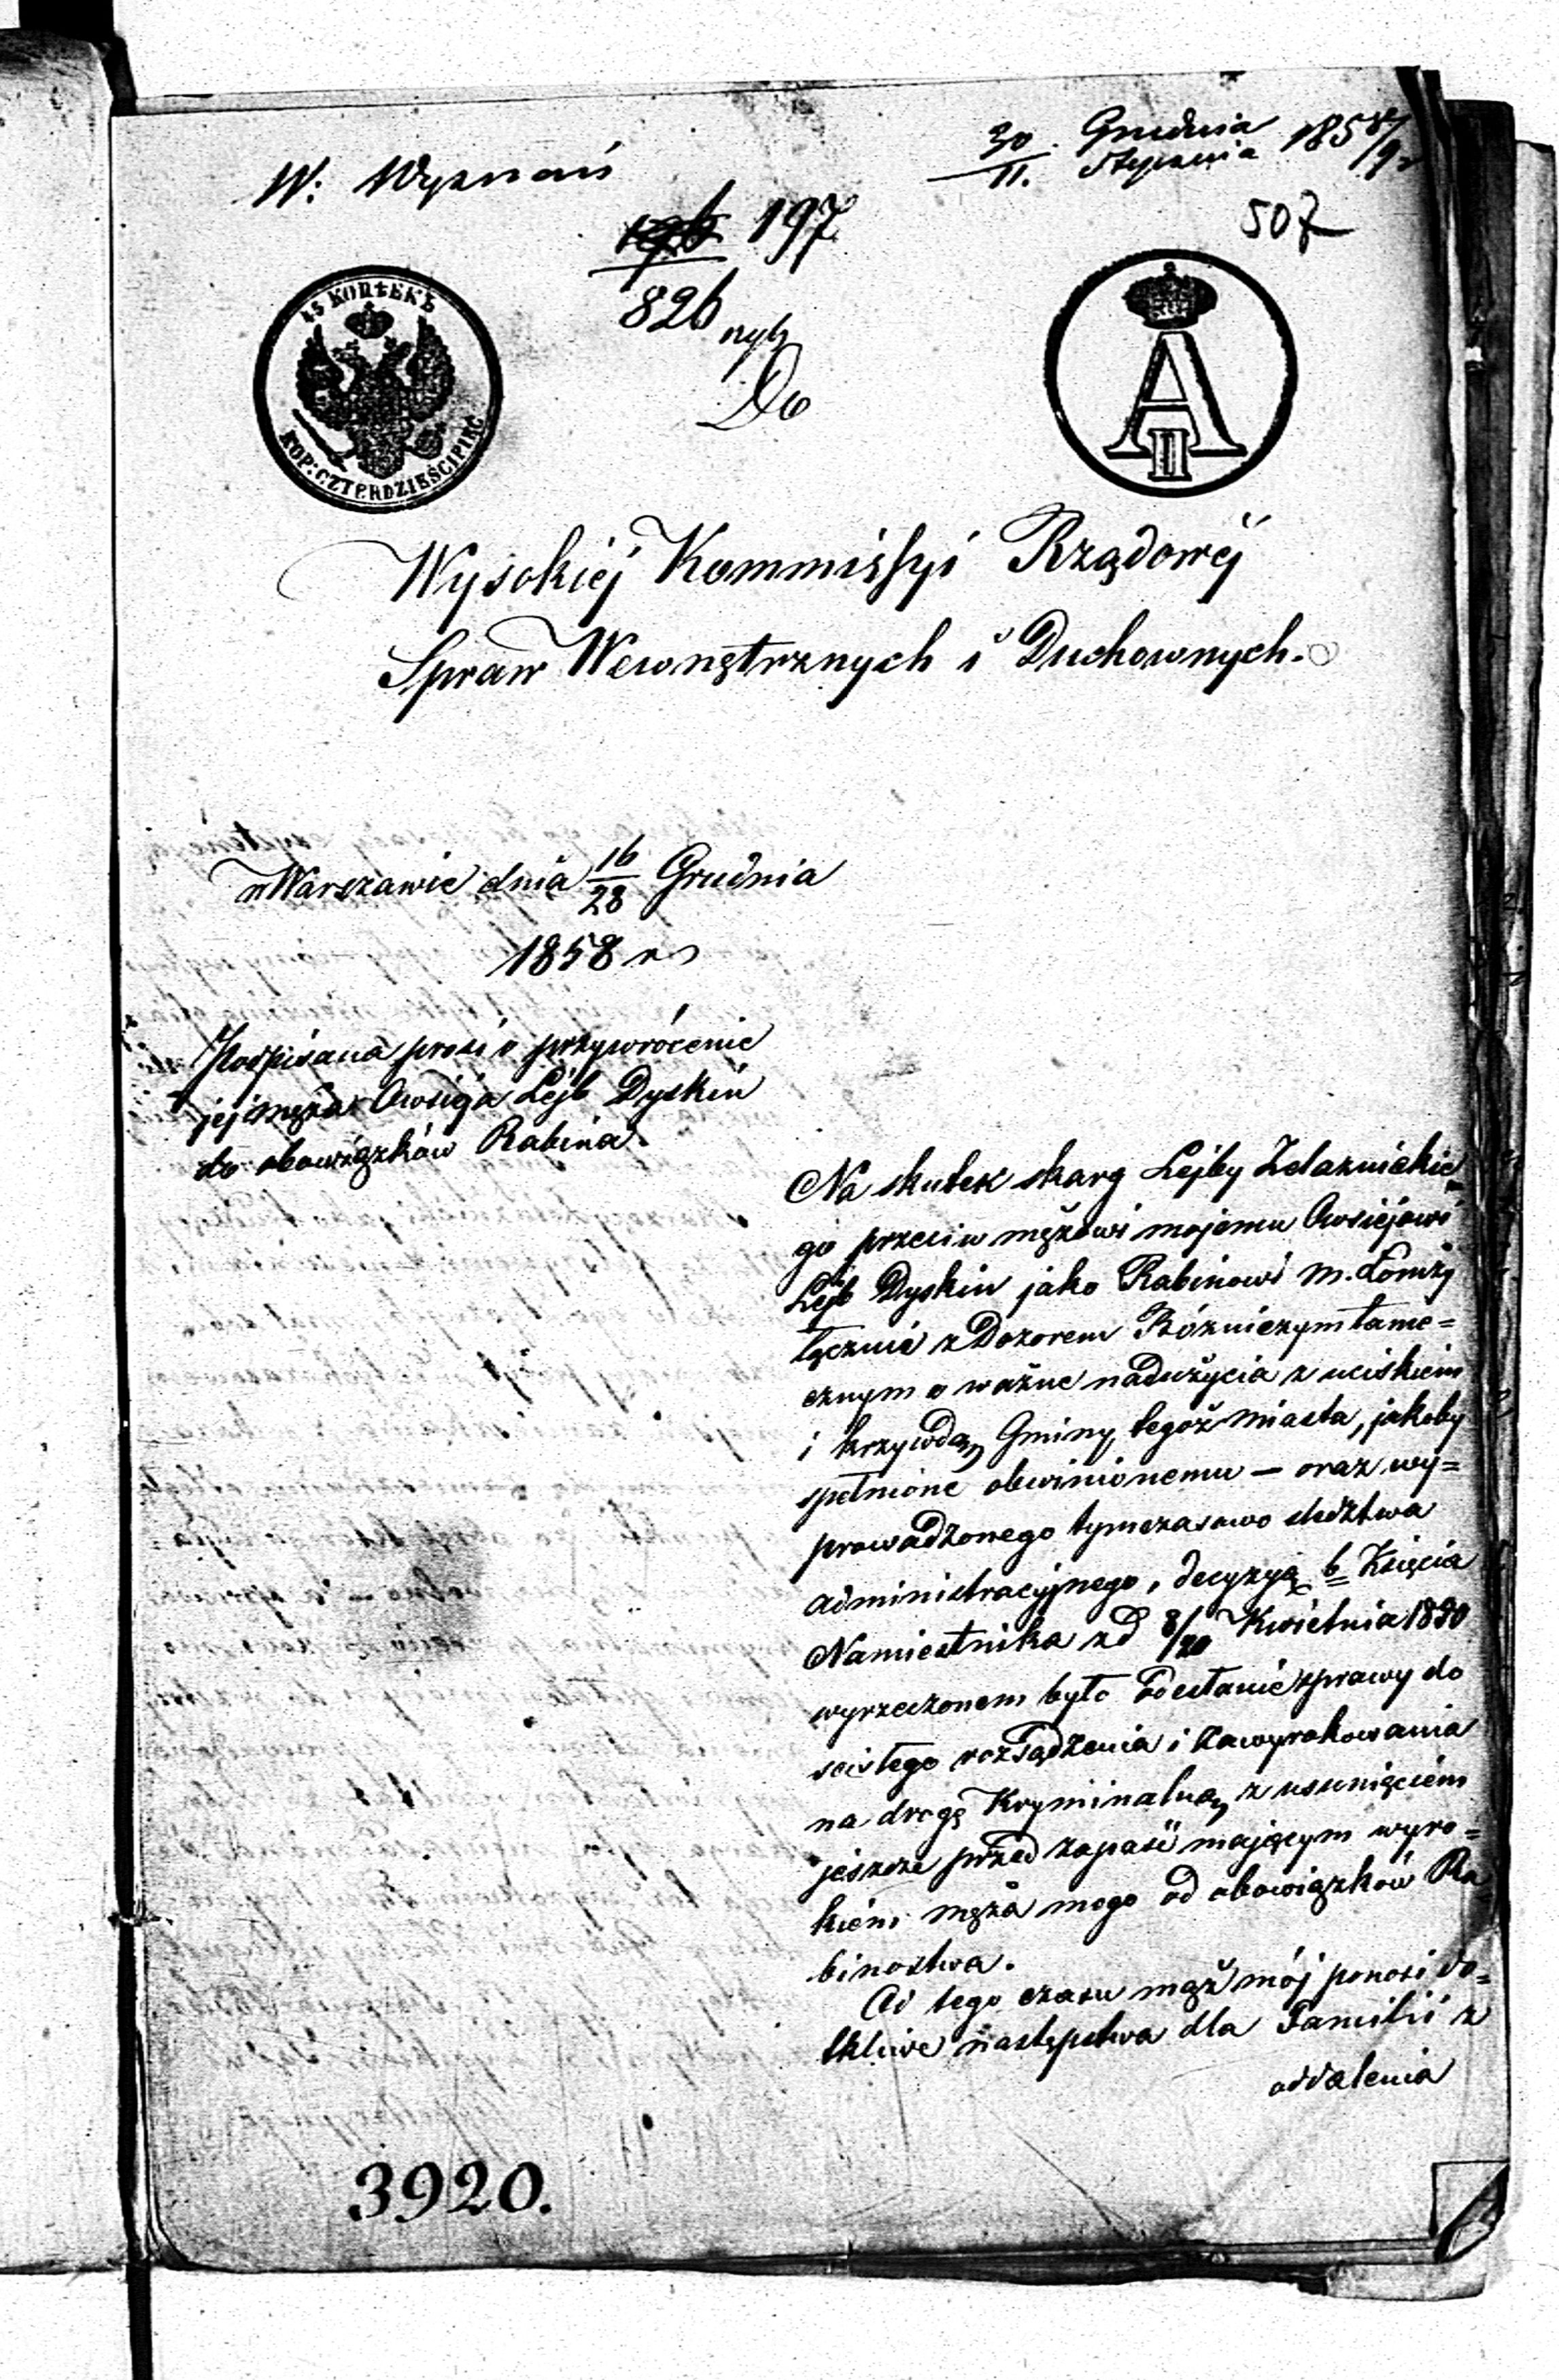 W: Wyznań
30/11. Grudnia Stycznia 1858/9
507
196 197
826
Do
45 KOПѢЕКЪ
KOP: CZTERDZIEŚCI PIĘĆ
A II
Wysokiéj Kommissyi Rządowéj
Spraw Wewnętrznych i Duchownych.
w Warszawie dnia 16/28 Grudnia
1858 r
Podpisana prosi o przywrócenie
jej męża Owsieja Lejb Dyskin
do obowiązków Rabina.
Na skutek skarg Lejby Zelaznickie
go przeciw mężowi mojemu Owsiejowi
Lejb Dyskin jako Rabinowi m. Łomży
łącznie z Dozorem Bóżniczym tame=
cznym o ważne nadużycia z uciskiem
i krzywdą Gminy tegoż miasta, jakoby
spełnione obwinionemu — oraz wy=
prowadzonego tymczasowo śledztwa
administracyjnego, decyzyą b= Księcia
Namiestnika z d 8/20 Kwietnia 1850
wyrzeczonem było odesłanie sprawy do
scisłego rozsądzenia i zawyrokowania
na drogę Kryminalną z usunięciem
jeszcze przed zapaść mającym wyro=
kiem męża mego od obowiązków Ra
binostwa.
Od tego czasu mąż mój ponosi do=
tkliwe następstwa dla Familii z
oddalenia
3920.